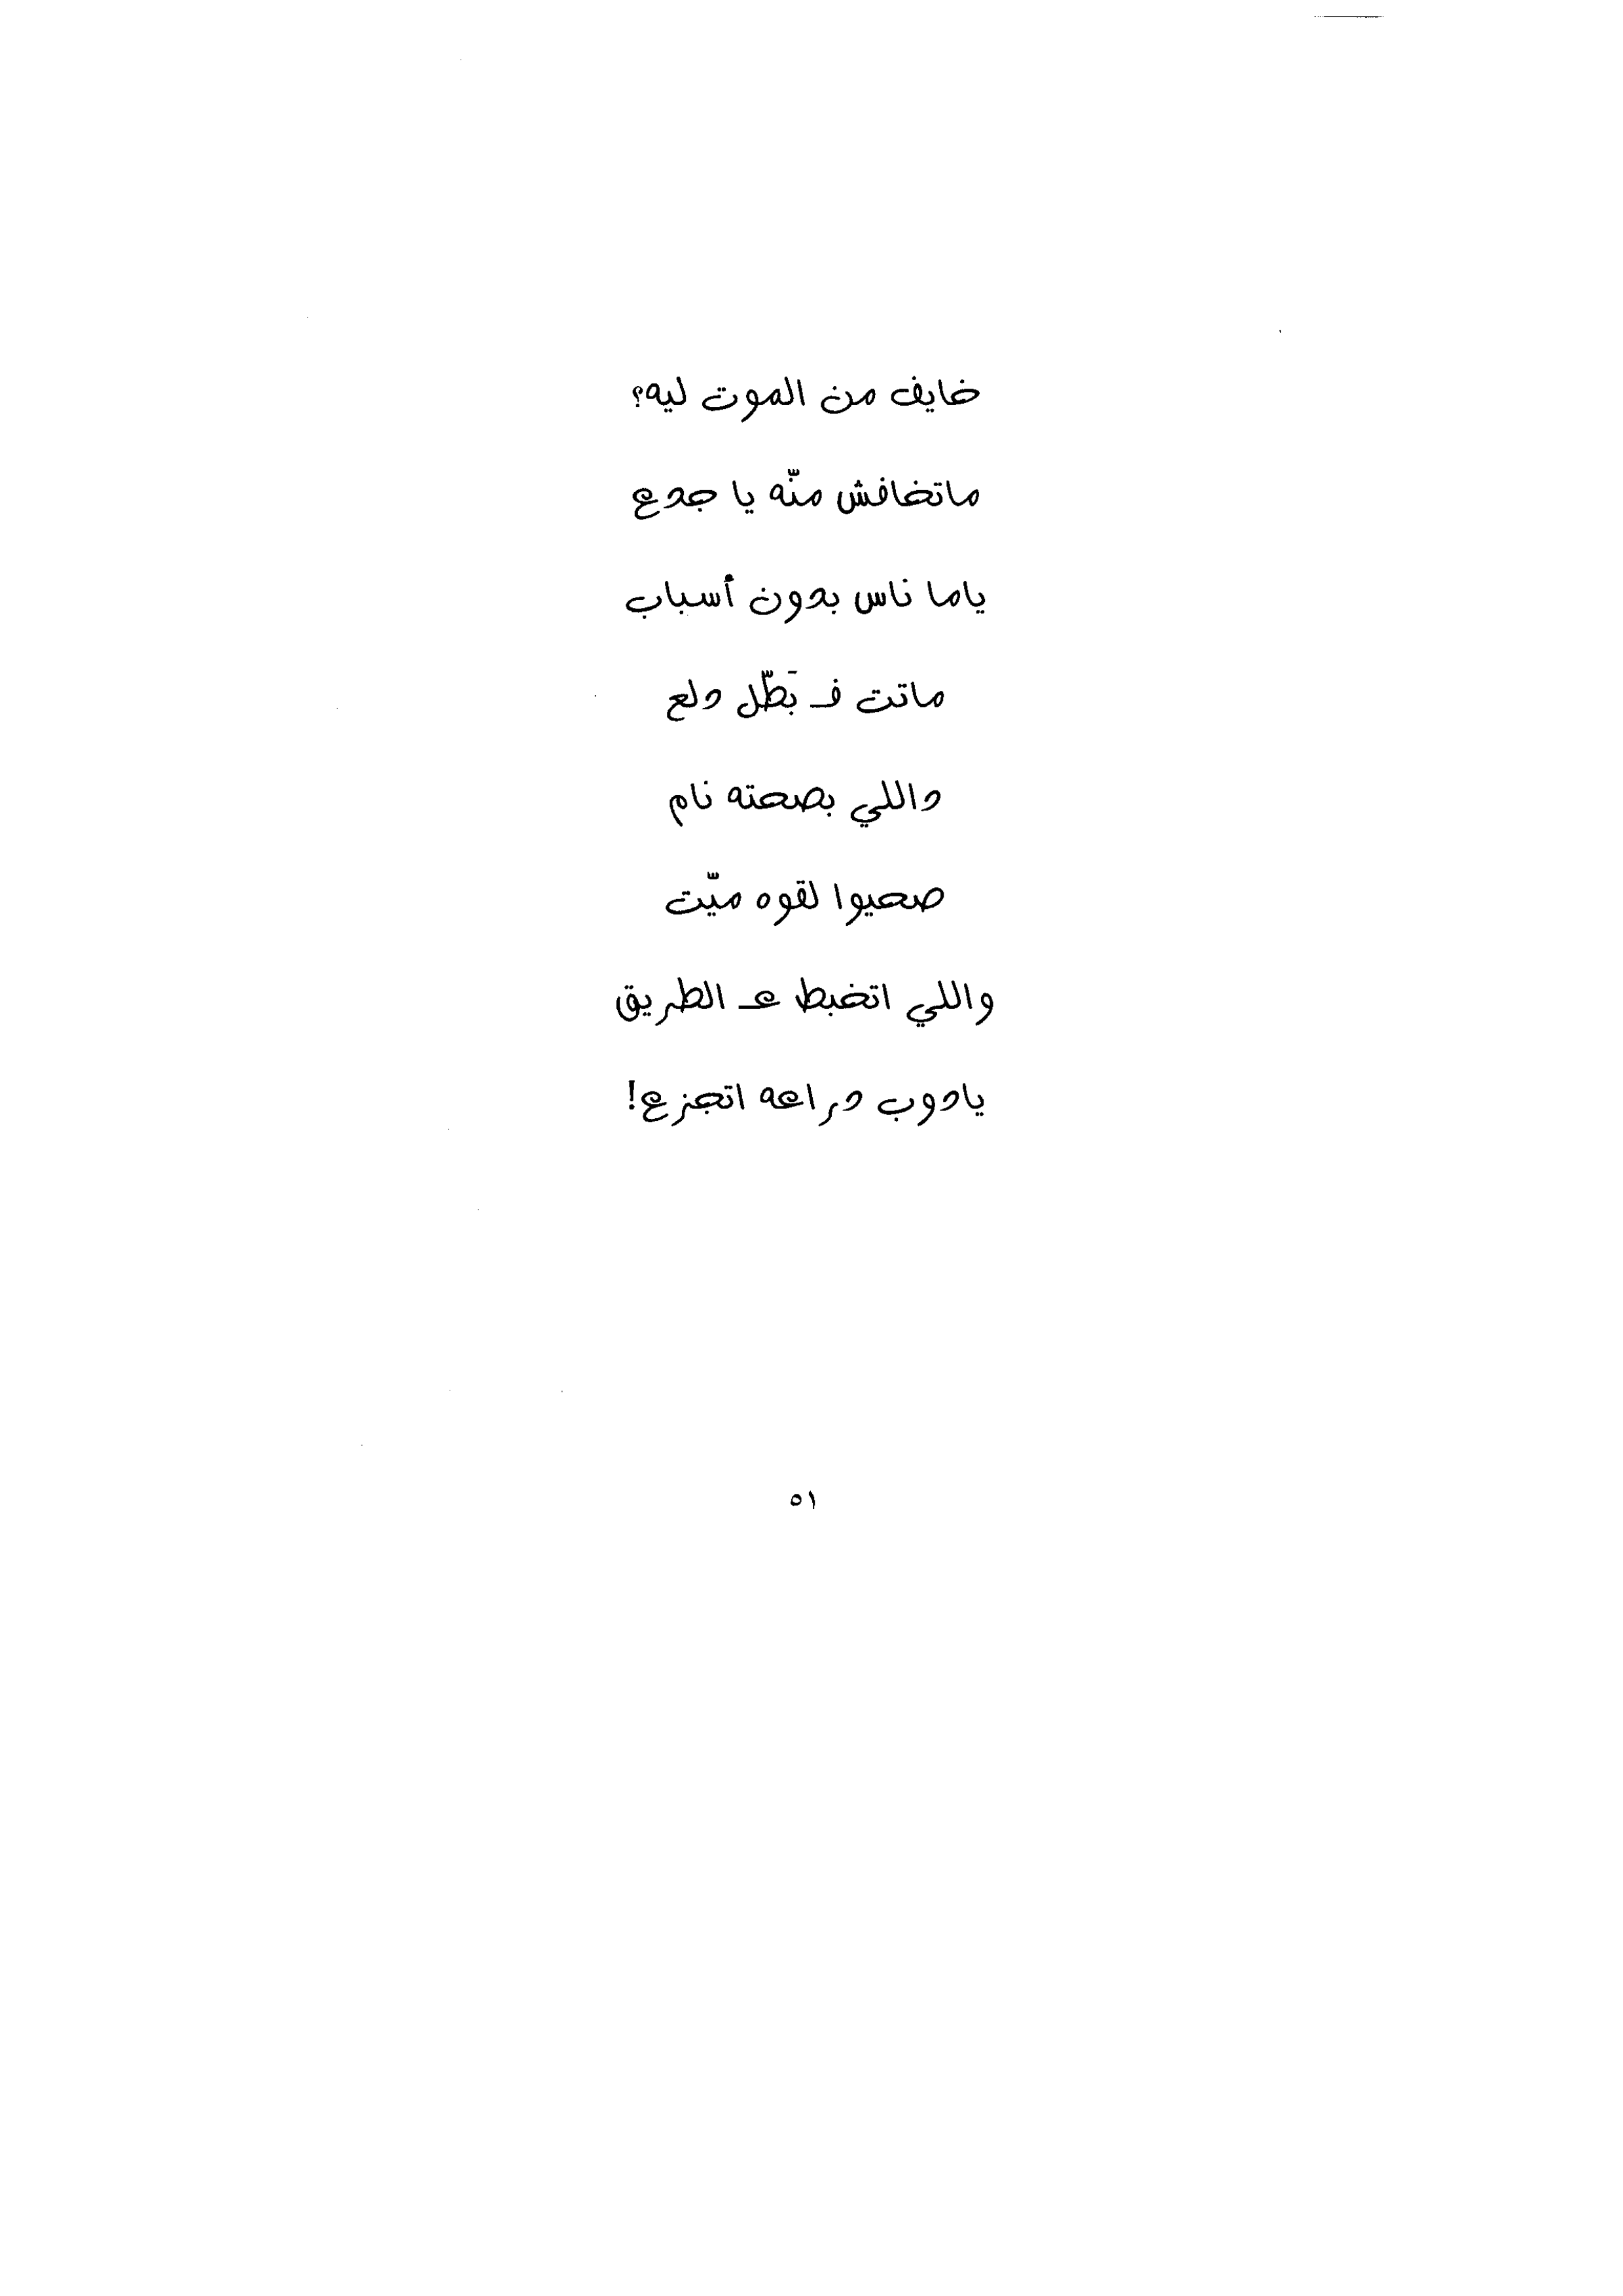 خايف من الموت ليه؟
ماتخافش منّه يا جدع
ياما ناس بدون أسباب
ماتت فـ بَطّل دلع
داللي بصحته نام
صحيوا لقوه ميّت
واللي اتخبط عـ الطريق
يادوب دراعه اتجزع!
٥١